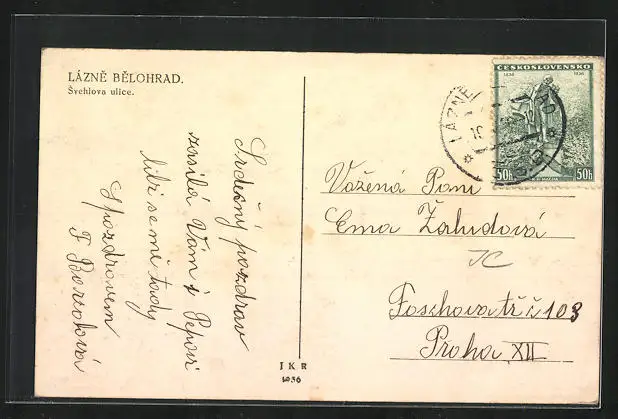 LÁZNĚ BĚLOHRAD.
Švehlova ulice.
Srdečný pozdrav
zasílá Vám i Pepovi
líbí se mě tady
S pozdravem
F
J K R
1936
ČESKOSLOVENSKO
1836 1936
50h 50h
LÁZNĚ
Vážená Paní
Ema Žaludová
Foschova tř č 108
Praha XII